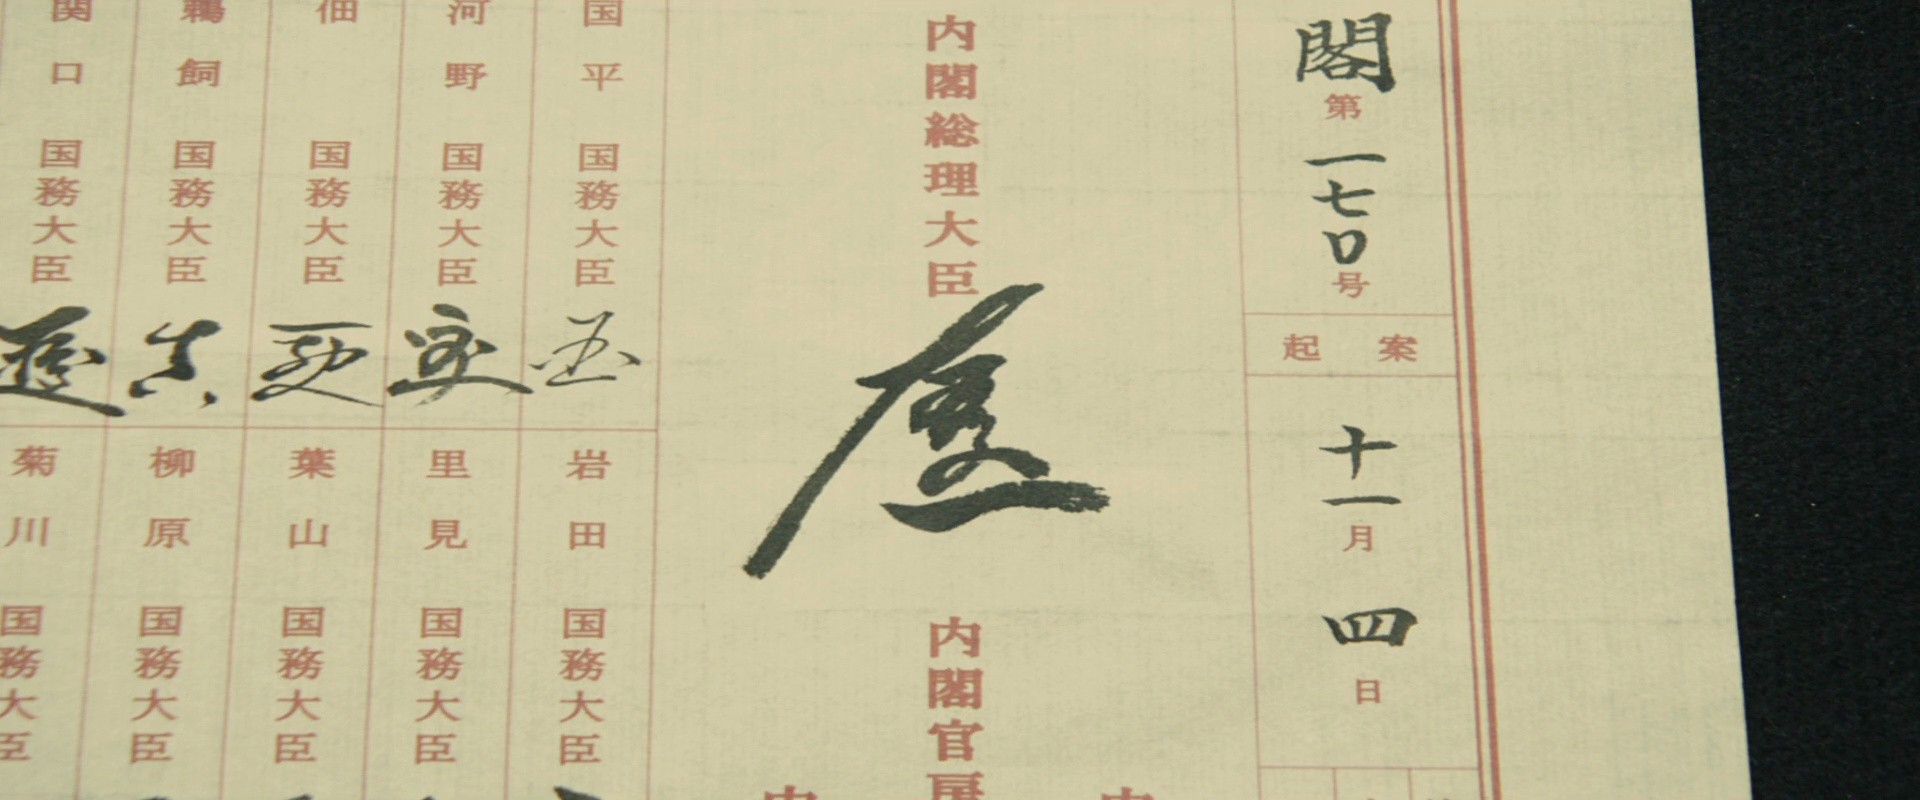 閣第一七〇号
起案
十一月四日
内閣総理大臣
内閣官房
国平 国務大臣
河野 国務大臣
佃 国務大臣
鵜飼 国務大臣
関口 国務大臣
岩田 国務大臣
里見 国務大臣
葉山 国務大臣
柳原 国務大臣
菊川 国務大臣